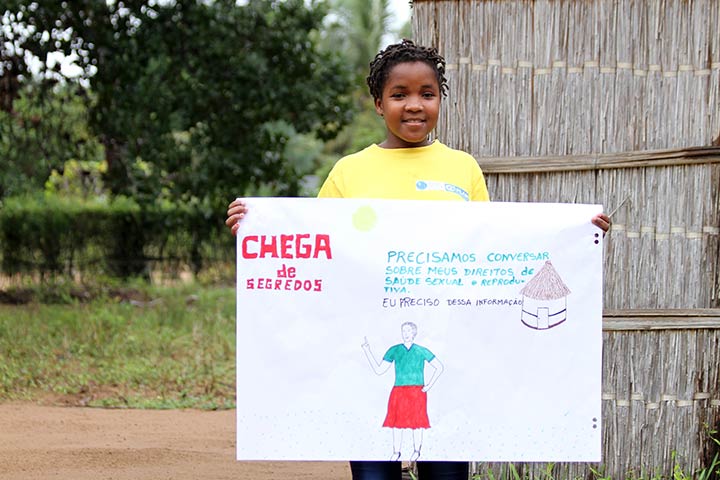 CHEGA
de
SEGREDOS
PRECISAMOS CONVERSAR
SOBRE MEUS DIREITOS DE
SAÚDE SEXUAL e REPRODU-
TIVA.
EU PRECISO DESSA INFORMAÇÃO